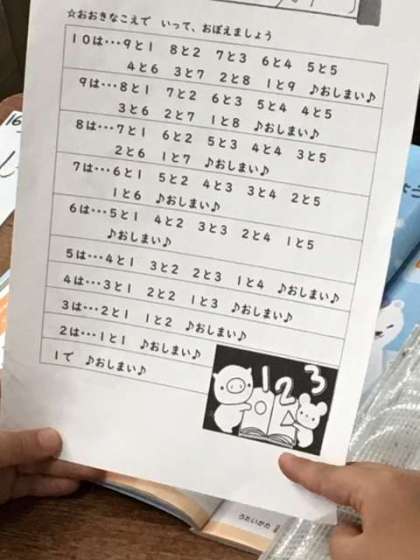 ☆おおきなこえで いって、おぼえましょう
10は･･･9と1 8と2 7と3 6と4 5と5
4と6 3と7 2と8 1と9 ♪おしまい♪
9は･･･8と1 7と2 6と3 5と4 4と5
3と6 2と7 1と8 ♪おしまい♪
8は･･･7と1 6と2 5と3 4と4 3と5
2と6 1と7 ♪おしまい♪
7は･･･6と1 5と2 4と3 3と4 2と5
1と6 ♪おしまい♪
6は･･･5と1 4と2 3と3 2と4 1と5
♪おしまい♪
5は･･･4と1 3と2 2と3 1と4 ♪おしまい♪
4は･･･3と1 2と2 1と3 ♪おしまい♪
3は･･･2と1 1と2 ♪おしまい♪
2は･･･1と1 ♪おしまい♪
1で ♪おしまい♪
123